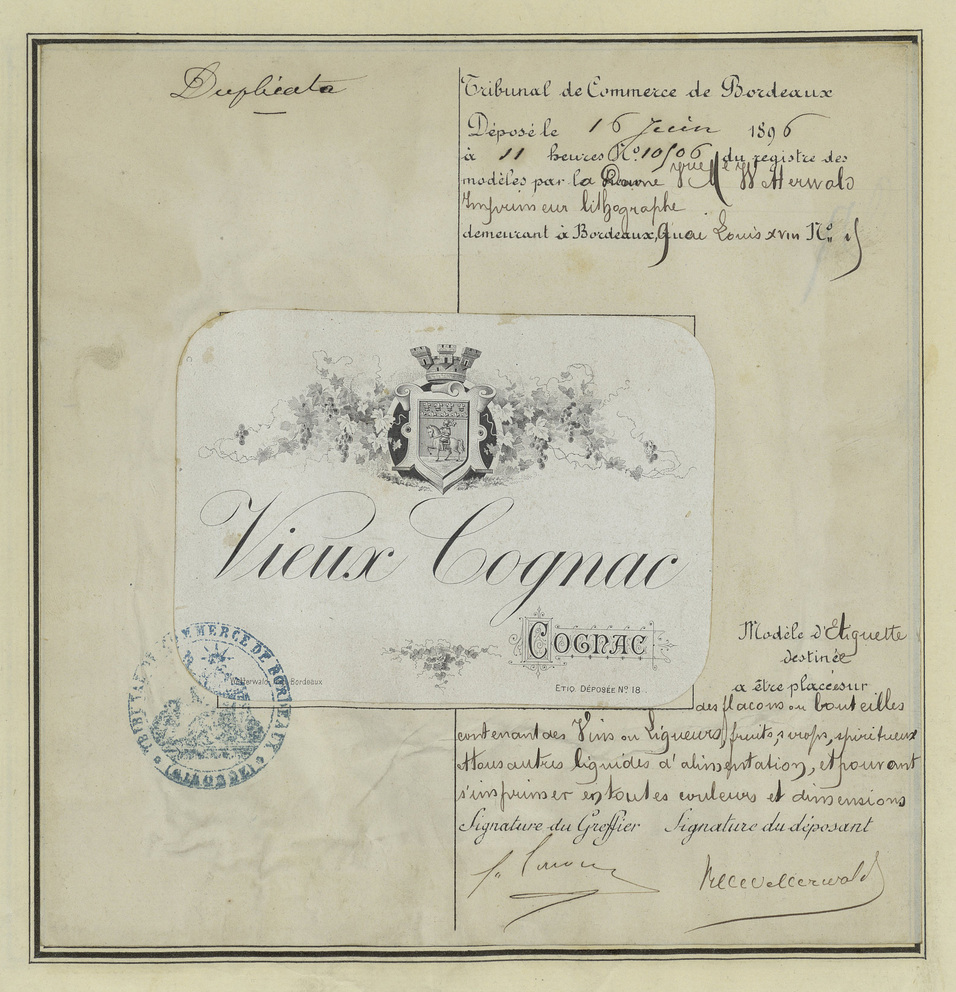 Duplicata
Tribunal de Commerce de Bordeaux
Déposé le 16 Juin 1896
à 11 heures N° 10506 du registre des
modèles par la Vve M Wetterwald
Imprimeur lithographe
demeurant à Bordeaux, Quai Louis XVIII N°
Vieux Cognac
COGNAC
Wetterwald Bordeaux
ETIQ. DÉPOSÉE N° 18.
TRIBUNAL DE COMMERCE DE BORDEAUX
(GIRONDE)
Modèle d'Etiquette
destinée
a être placée sur
des flacons ou bouteilles
contenant des Vins ou Liqueurs, fruits, sirops, spiritueux
et tous autres liquides d'alimentation, et pouvant
s'imprimer en toutes couleurs et dimensions
Signature du Greffier Signature du déposant
Wetterwald